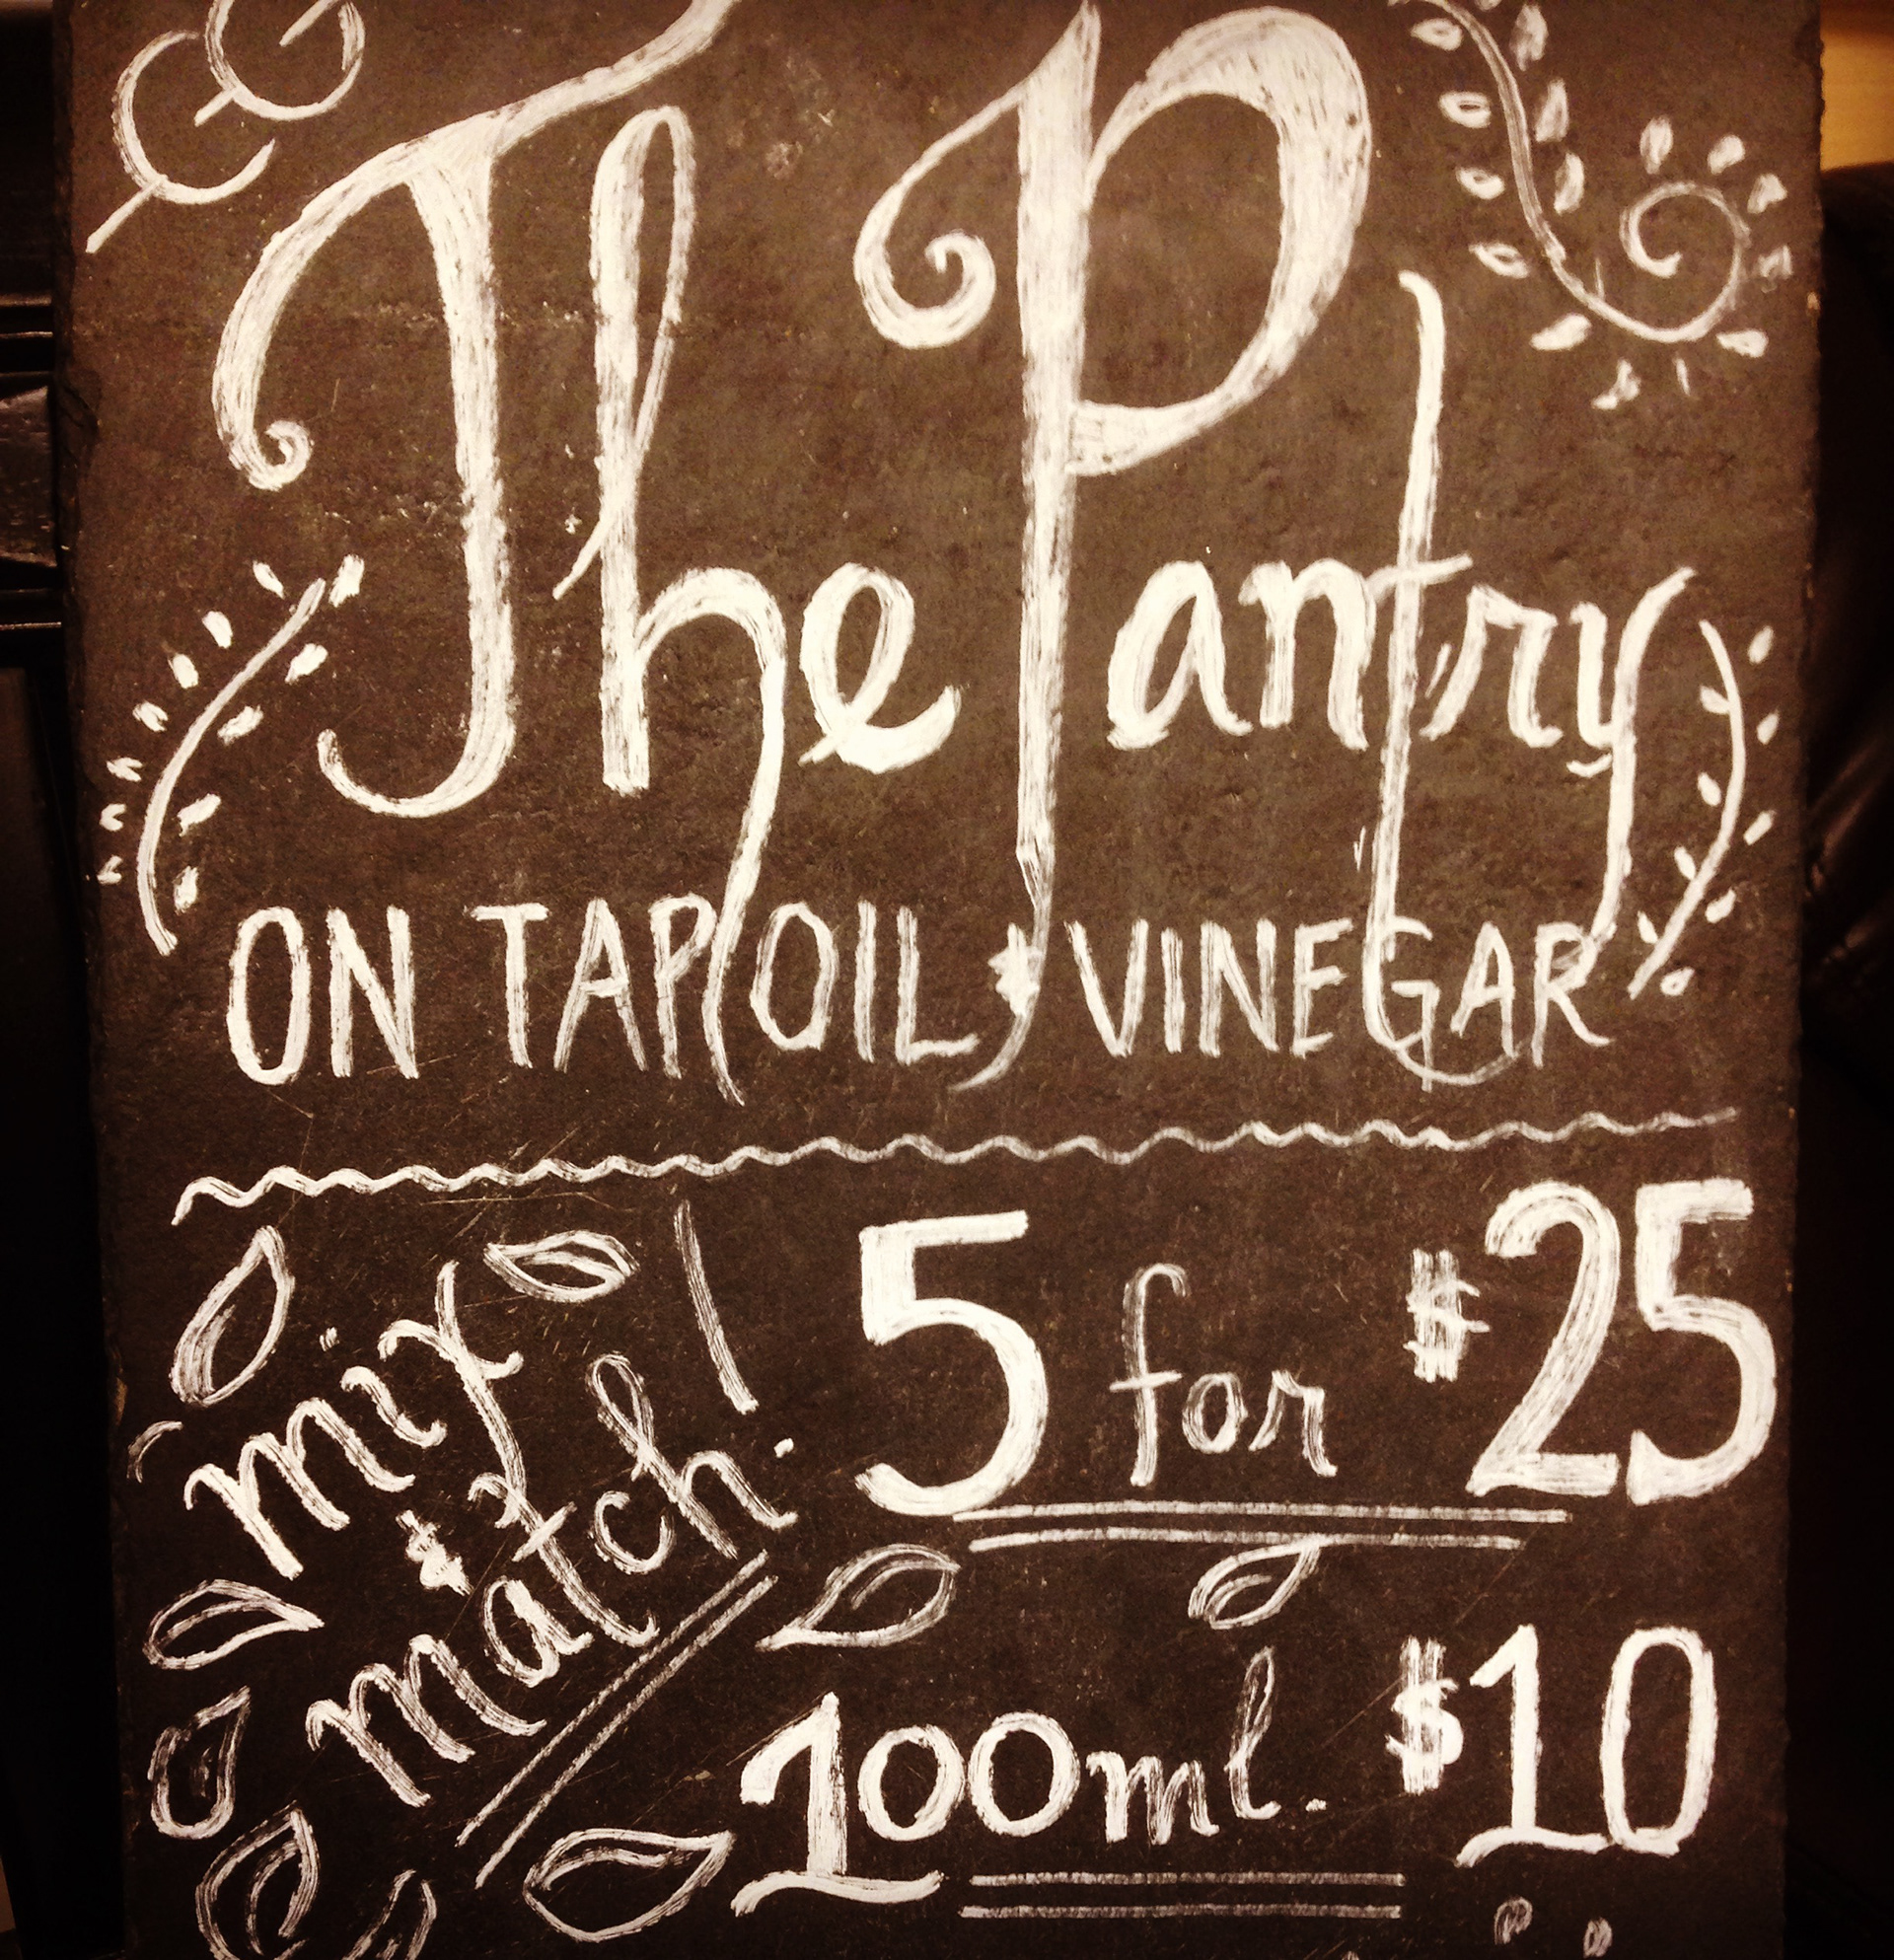 The Pantry
ON TAP OIL & VINEGAR
mix
&
match!
5 for $25
100ml. $10